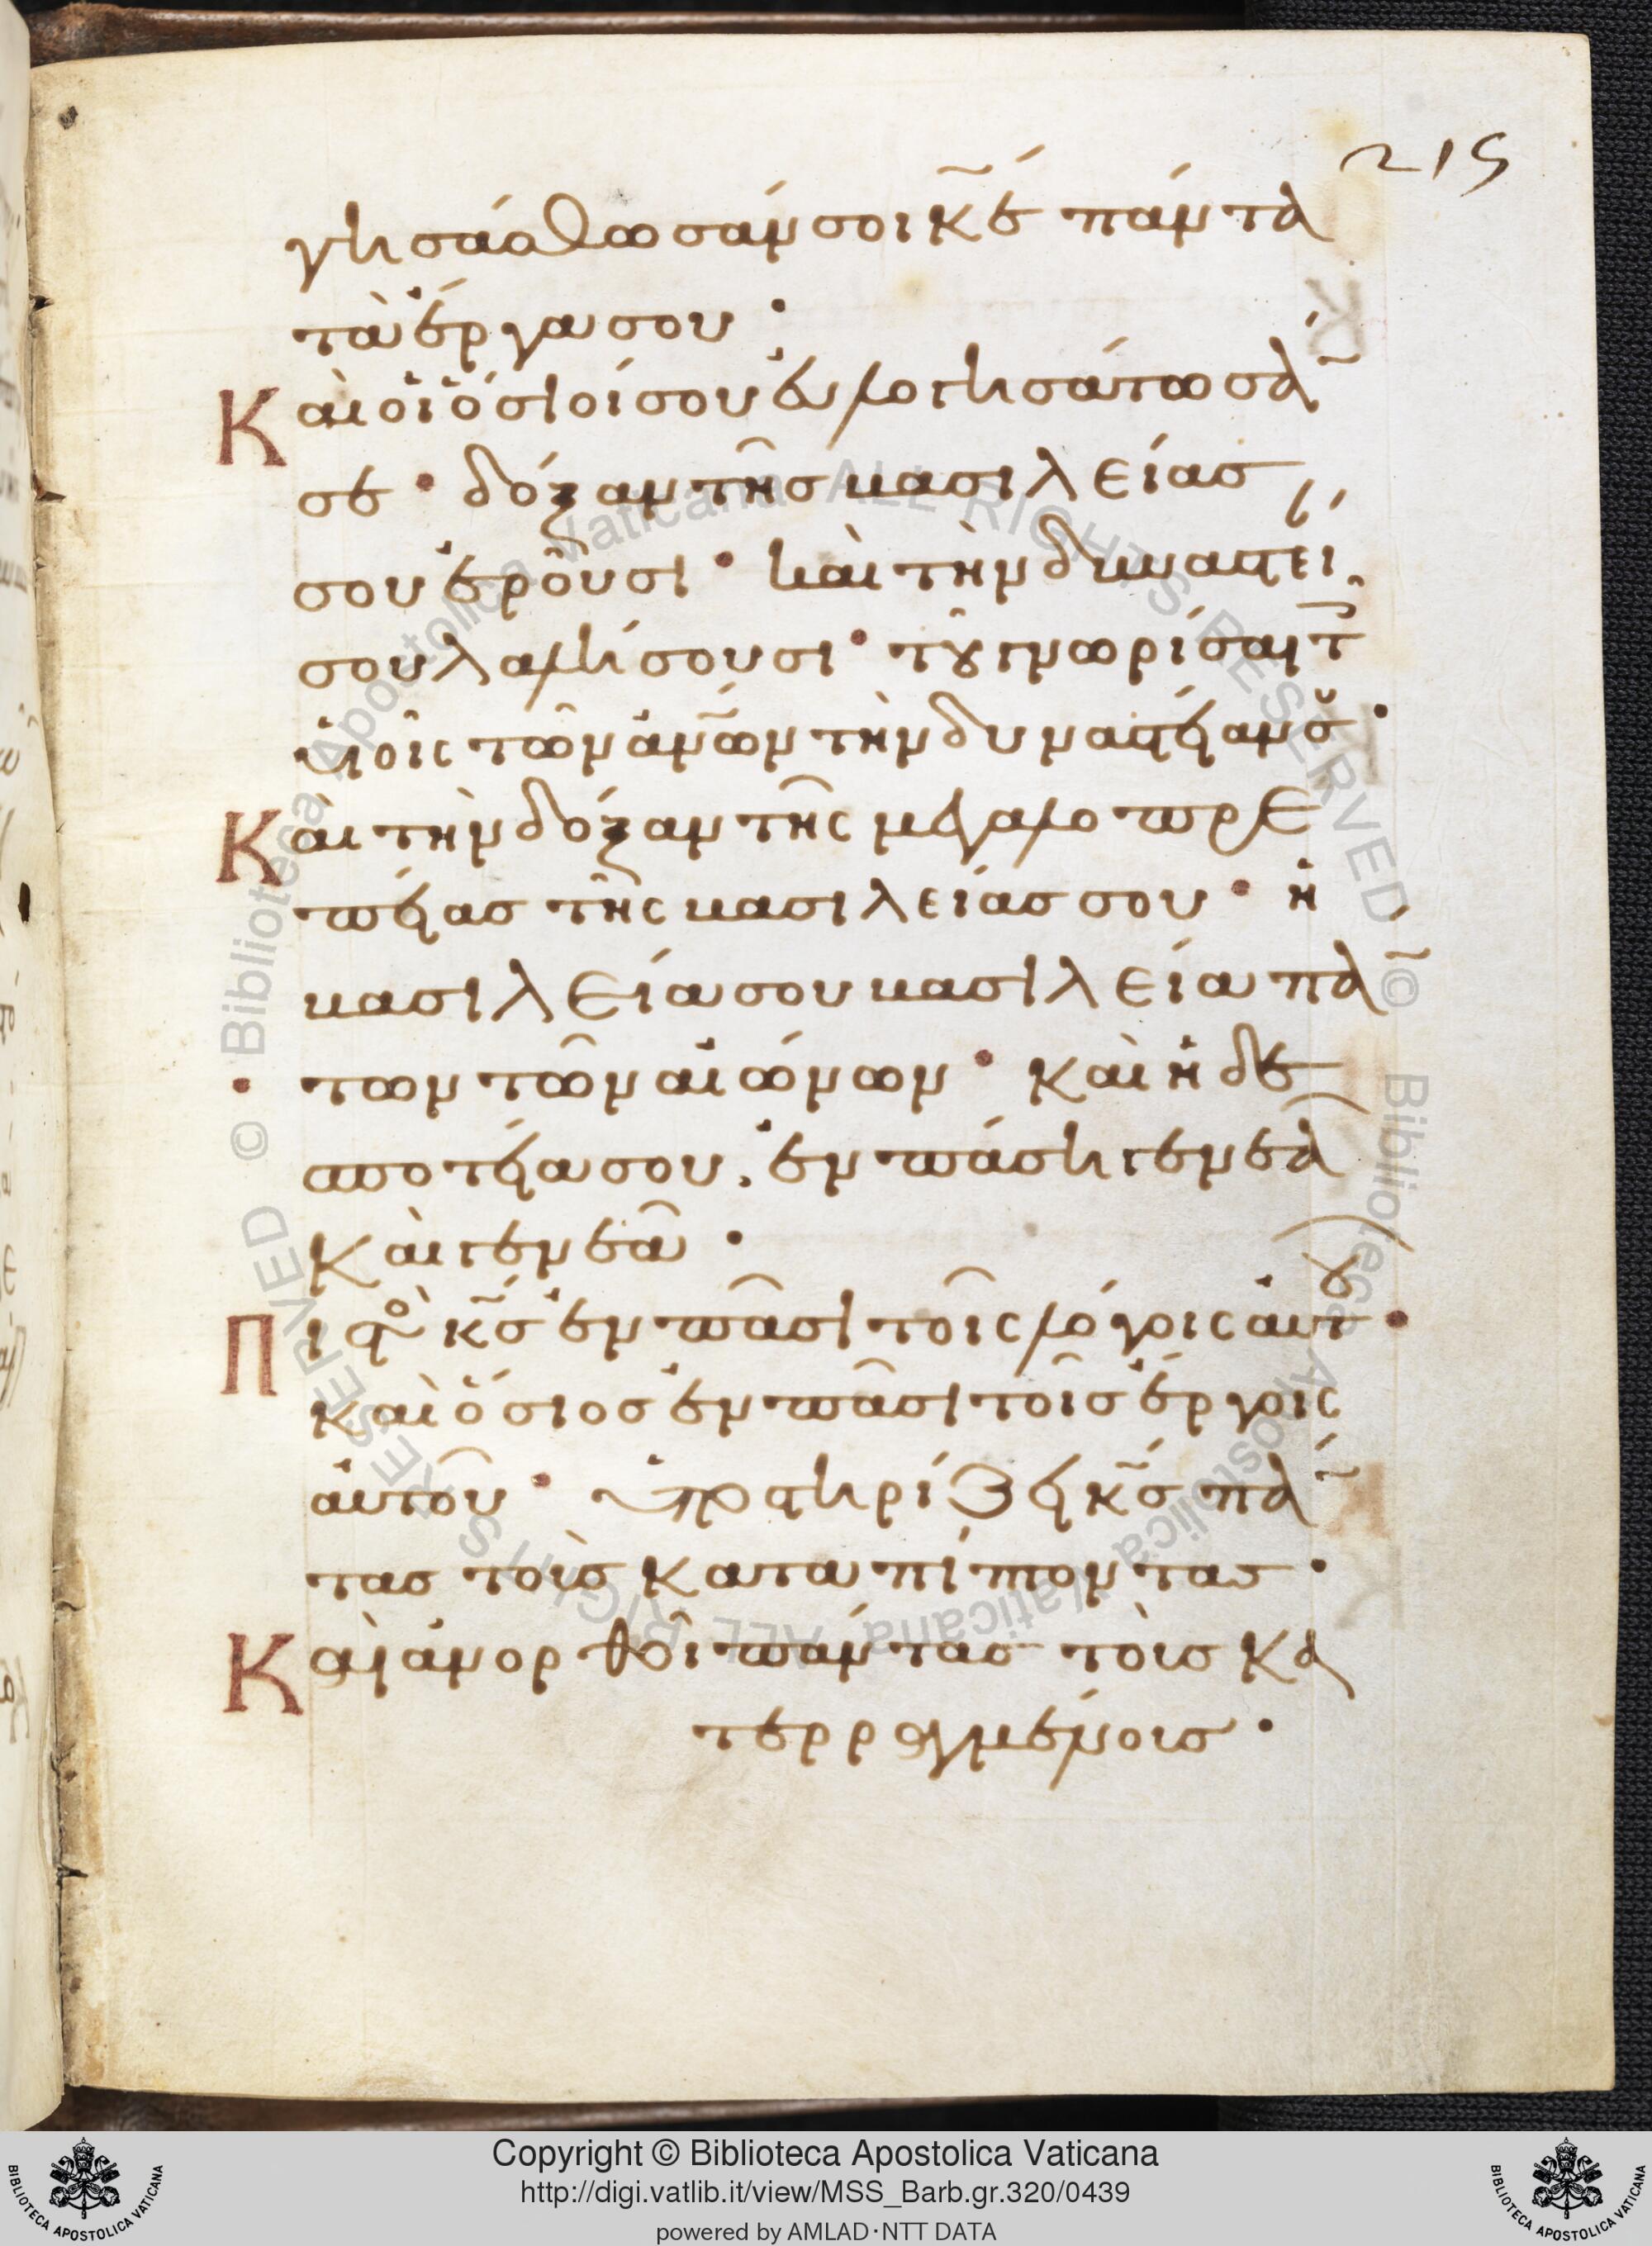 215
γησάσθωσάν σοι κ̅ε̅ πάντα
τὰ ἔργα σου·
Καὶ οἱ ὅσιοί σου εὐλογησάτωσα̅
σε· δόξαν τῆς βασιλείας
σου ἐροῦσι· καὶ τὴν δυναστεί
σου λαλήσουσι· τοῦ γνωρίσαι τ
υἱοῖς τῶν ἀν̅ω̅ν τὴν δυναστείαν σου·
Καὶ τὴν δόξαν τῆς μεγαλοπρε
πείας τῆς βασιλείας σου· ἡ
βασιλεία σου βασιλεία πά̅
των τῶν αἰώνων· καὶ ἡ δε
σποτεία σου, ἐν πάσῃ γενεᾶ
καὶ γενεᾶ·
Πιστὸς κ̅ς̅ ἐν πᾶσι τοῖς λόγοις αὐτοῦ·
καὶ ὅσιος ἐν πᾶσι τοῖς ἔργοις
αὐτοῦ· ὑποστηρίζει κ̅ς̅ πά̅
τας τοὺς καταπίπτοντας·
Καὶ ἀνορθοῖ πάντας τοὺς κα
τερραγμένους·
Copyright © Biblioteca Apostolica Vaticana
http://digi.vatlib.it/view/MSS_Barb.gr.320/0439
powered by AMLAD·NTT DATA
BIBLIOTECA APOSTOLICA VATICANA
BIBLIOTECA APOSTOLICA VATICANA
© Biblioteca Apostolica Vaticana ALL RIGHTS RESERVED
© Biblioteca Apostolica Vaticana ALL RIGHTS RESERVED